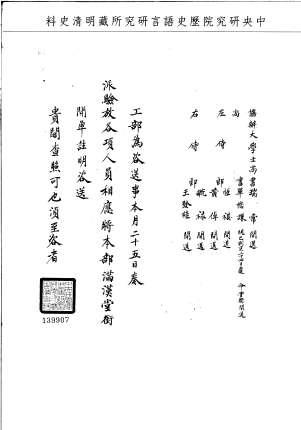 中央研究院歷史語言研究所藏明清史料
協辦大學士尚書瑞常開送
尚書單懋謙
左侍郎
恒祺開送
開送
右侍郎
毓祿開送
王發桂開送
工部為咨送事本月二十五日奏
派驗放各項人員相應將本部滿漢堂銜
開單註明咨送
貴閣查照可也須至咨者
139907